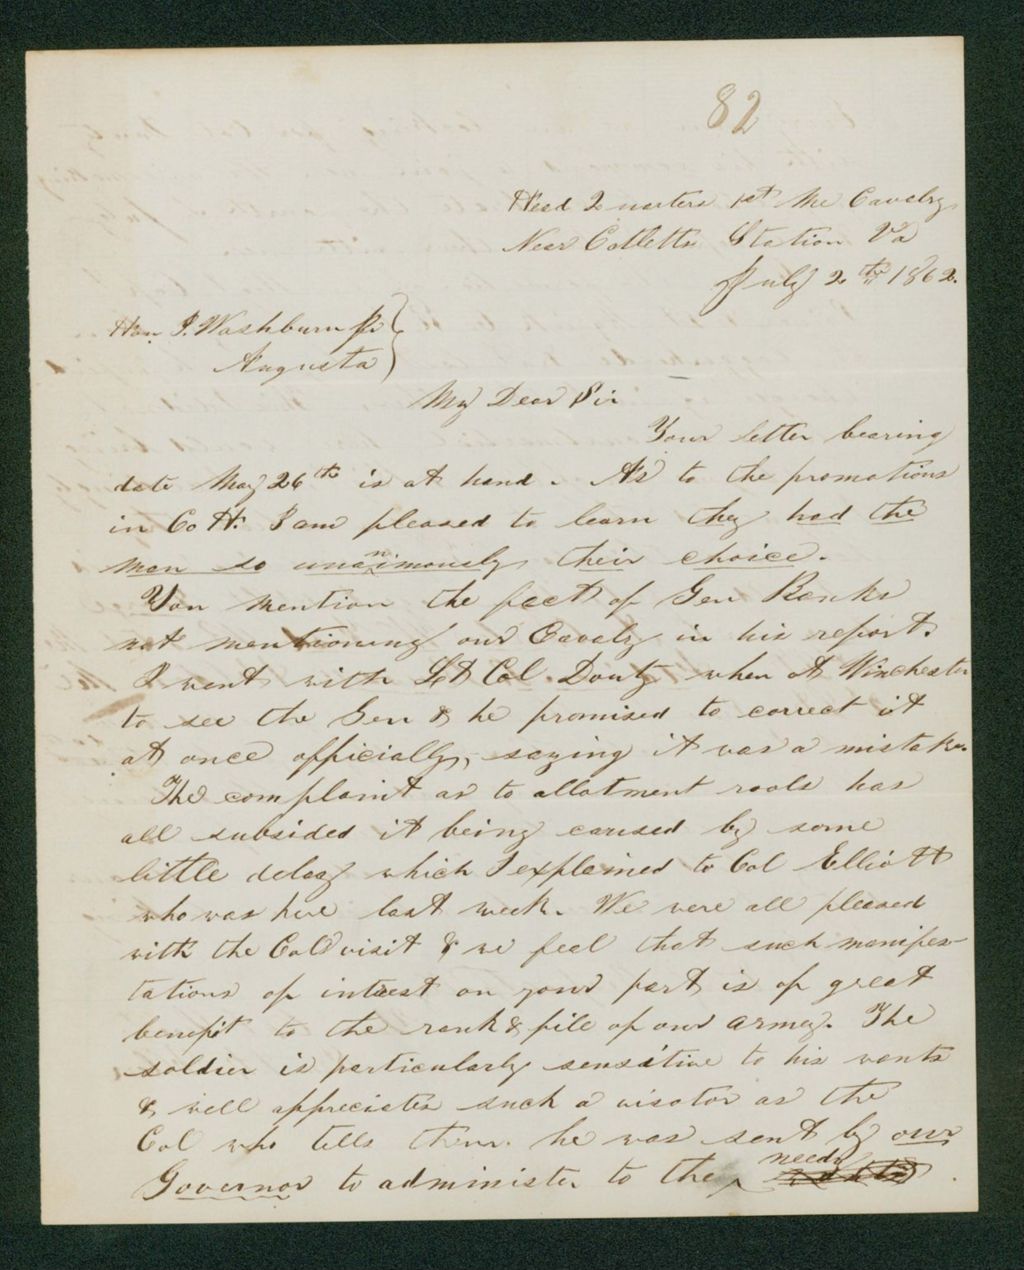 82
Head Quarters 1st Me Cavalry
Near Catletts Station Va
July 2th 1862.
Hon. I. Washburn Jr
Augusta
My Dear Sir
Your letter bearing
date May 26th is at hand. As to the promotions
in Co H. I am pleased to learn they had the
man so unanimously their choice.
You mention the fact of Gen Banks
not mentioning our Cavalry in his report.
I went with Lt Col. Douty when at Winchester
to see the Gen & he promised to correct it
at once officially, saying it was a mistake.
The complaint as to allotment roals has
all subsided it being caused by some
little delay which I explained to Col Elliott
who was here last week. We were all pleased
with the Cols visit & we feel that such manifes-
tations of interest on your part is of great
benefit to the rank & file of our army. The
soldier is particularly sensative to his wants
& well appreciates such a visator as the
Col who tells them he was sent by our
Governor to administer to the needs